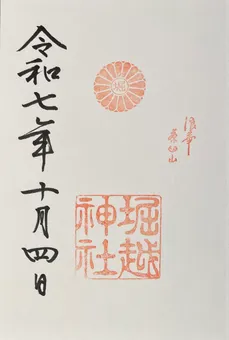 浪華
茶臼山
堀越
神社
令和七年十月四日